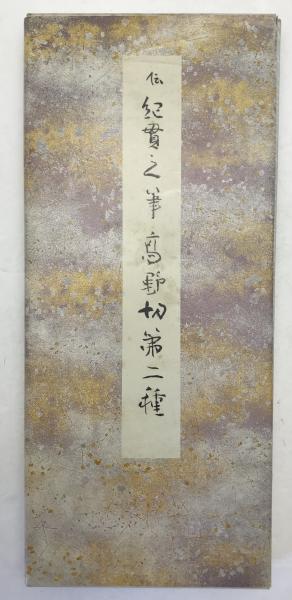 伝 紀貫之筆高野切第二種